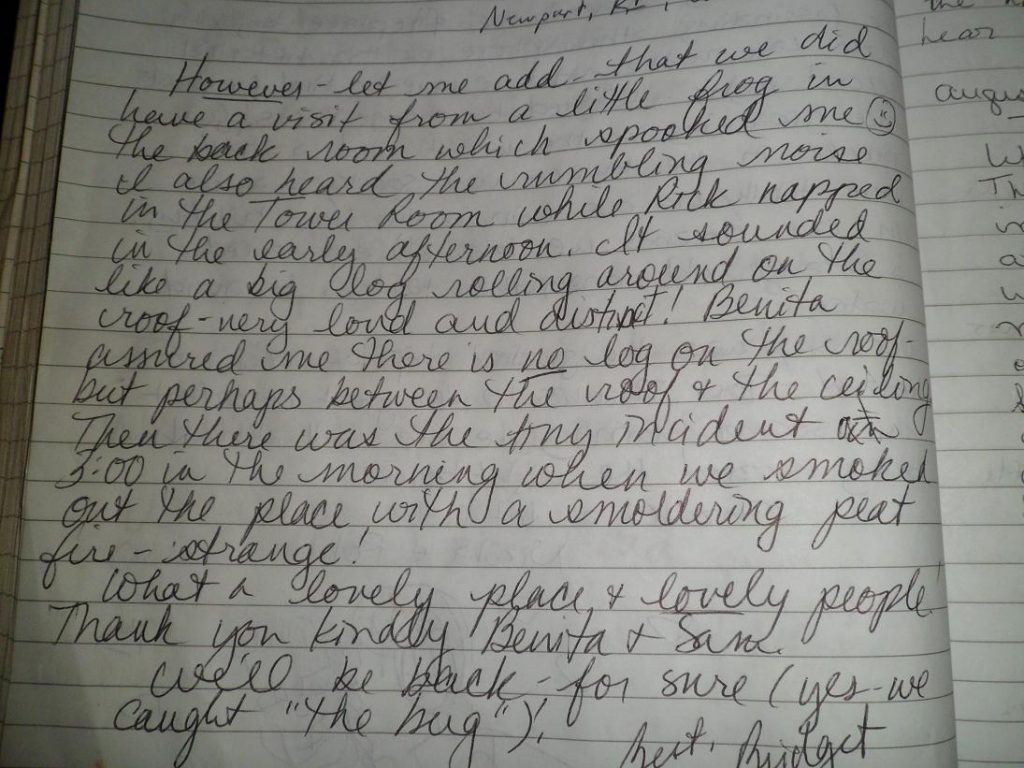 Newport, RI,
However - let me add that we did
have a visit from a little frog in
the back room which spooked me
I also heard the rumbling noise
in the Tower Room while Rick napped
in the early afternoon. It sounded
like a big log rolling around on the
roof - very loud and distinct! Benita
assured me there is no log on the roof -
but perhaps between the roof & the ceiling
Then there was the tiny incident
3:00 in the morning when we smoked
out the place with a smoldering peat
fire - strange!
What a lovely place & lovely people!
Thank you kindly Benita & Sam.
We'll be back - for sure (yes - we
caught "the bug")!
Best, Bridget
hear